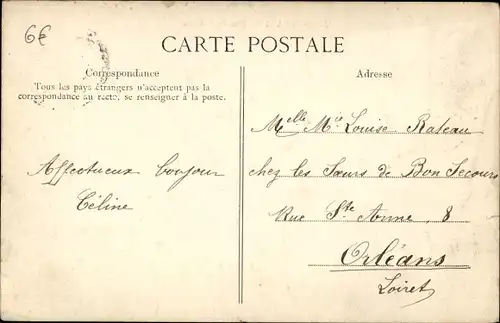 6€
CARTE POSTALE
Correspondance
Tous les pays étrangers n'acceptent pas la
correspondance au recto, se renseigner à la poste.
Affectueux bonjour
Céline
Adresse
Melle Mie Louise Rateau
chez les Sœurs de Bon Secours
Rue Ste Anne, 8
Orléans
Loiret